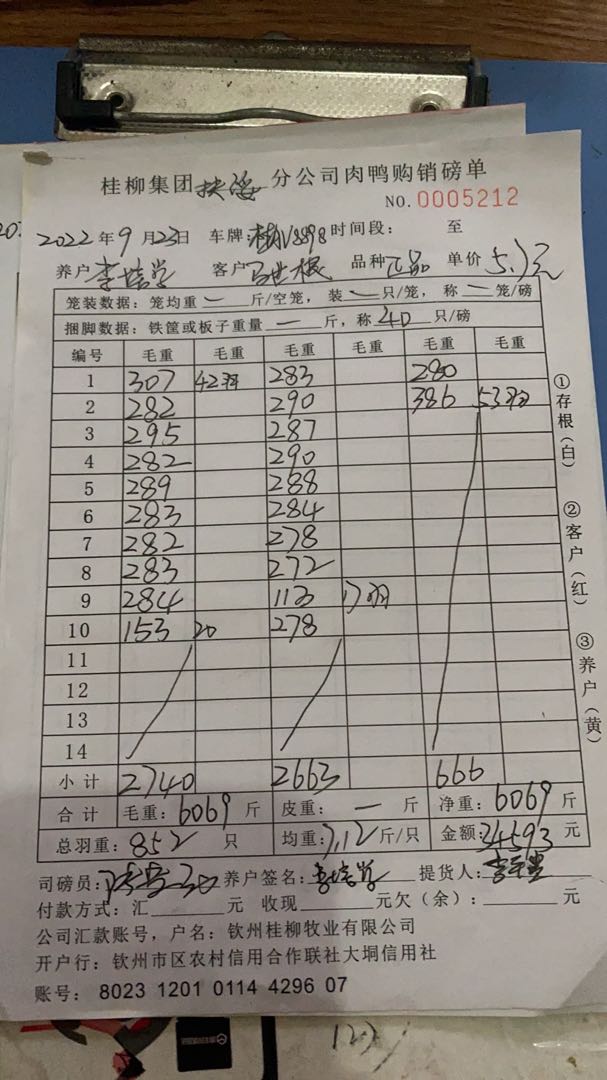 桂柳集团 扶绥 分公司肉鸭购销磅单
NO.0005212
2022年9月23日 车牌 V8898 时间段: 至
养户 李培学 客户 马世根 品种 正品 单价 5.7元
笼装数据:笼均重 一 斤/空笼,装 一 只/笼,称 一 笼/磅
捆脚数据:铁筐或板子重量 一 斤,称 40 只/磅
编号 毛重 毛重 毛重 毛重 毛重 毛重
1 307 42羽 283 280
2 282 290 386 53羽
3 295 287
4 282 290
5 289 288
6 283 284
7 282 278
8 283 272
9 284 113 17羽
10 153 20 278
11
12
13
14
小计 2740 2663 666
合计 毛重:6069 斤 皮重:一 斤 净重:6069 斤
总羽重:852 只 均重:7.12 斤/只 金额:34593 元
司磅员: 养户签名:李培学 提货人:
付款方式:汇 元 收现 元欠(余): 元
公司汇款账号,户名:钦州桂柳牧业有限公司
开户行:钦州市区农村信用合作联社大垌信用社
账号:8023 1201 0114 4296 07
①存根(白)
②客户(红)
③养户(黄)